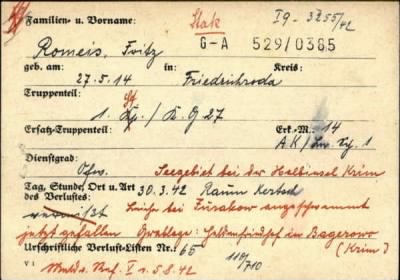 Familien- u. Vorname: Stak Ig - 3255/42
Romeis, Fritz G-A 529/0385
geb. am: in: Kreis:
27.5.14 Friedrichroda
Truppenteil: St
1. Kp./ K.G 27
Ersatz-Truppenteil: Erk-M. 14
A.K/ Ln. 1
Dienstgrad:
Ofw. Seegebiet bei der Halbinsel Krim
Tag, Stunde, Ort u. Art 30.3.42 Raum Kertsch
des Verlustes:
vermißt Leiche bei Furakow angeschwemmt
jetzt gefallen Grablage: Heldenfriedhof in Bagerowo
(Krim)
Urschriftliche Verlust-Listen Nr. 65 110/710
V 1 5.8.42